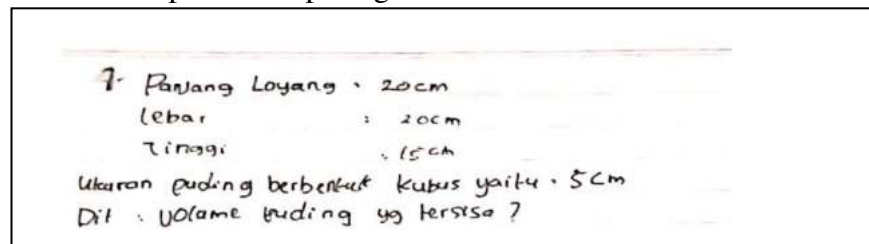 1. Panjang Loyang : 20cm
lebar : 20cm
Tinggi : 15cm
Ukuran puding berbentuk kubus yaitu : 5cm
Dit : Volume puding yg tersisa ?